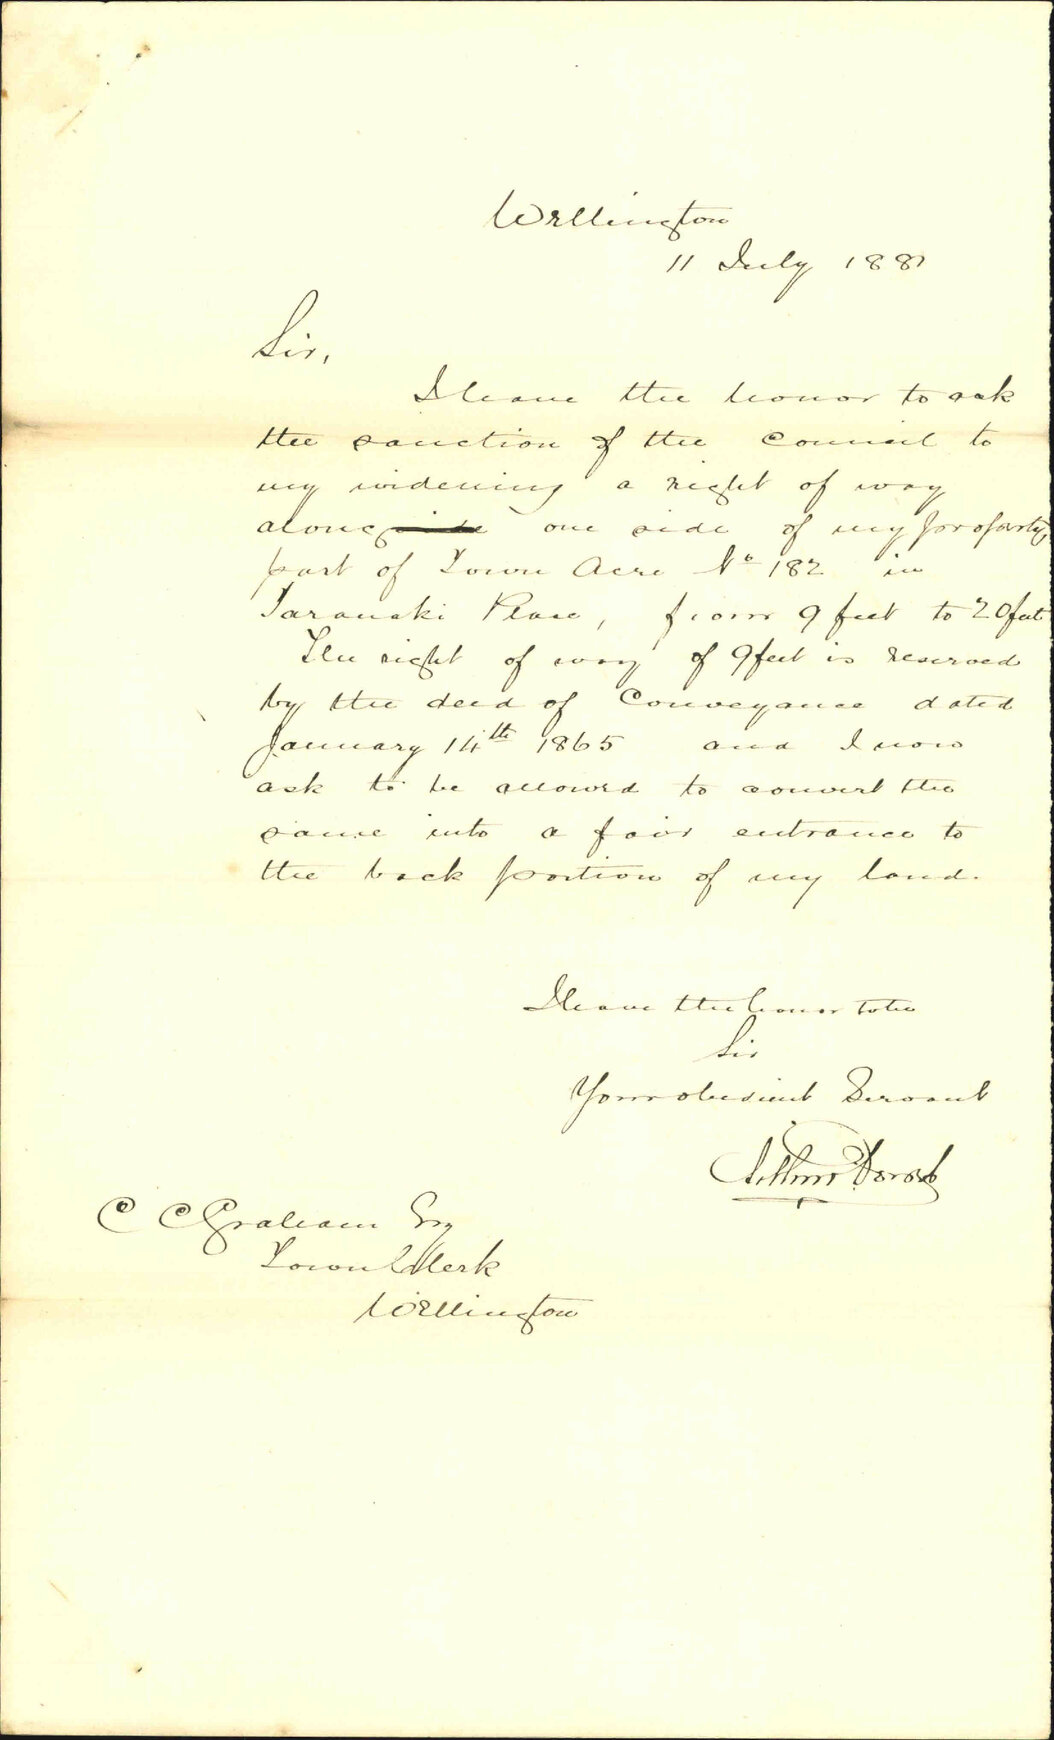 Wellington
11 July 1881
Sir,
I have the honor to ask
the sanction of the Council to
my widening a right of way
along one side of my property,
part of Town Acre No 182 in
Taranaki Place, from 9 feet to 20 feet
The right of way of 9 feet is reserved
by the deed of Conveyance dated
January 14th 1865 and I now
ask to be allowed to convert the
same into a fair entrance to
the back portion of my land.
I have the honor to be
Sir
Your obedient Servant
Arthur
C C Graham Esq
Town Clerk
Wellington